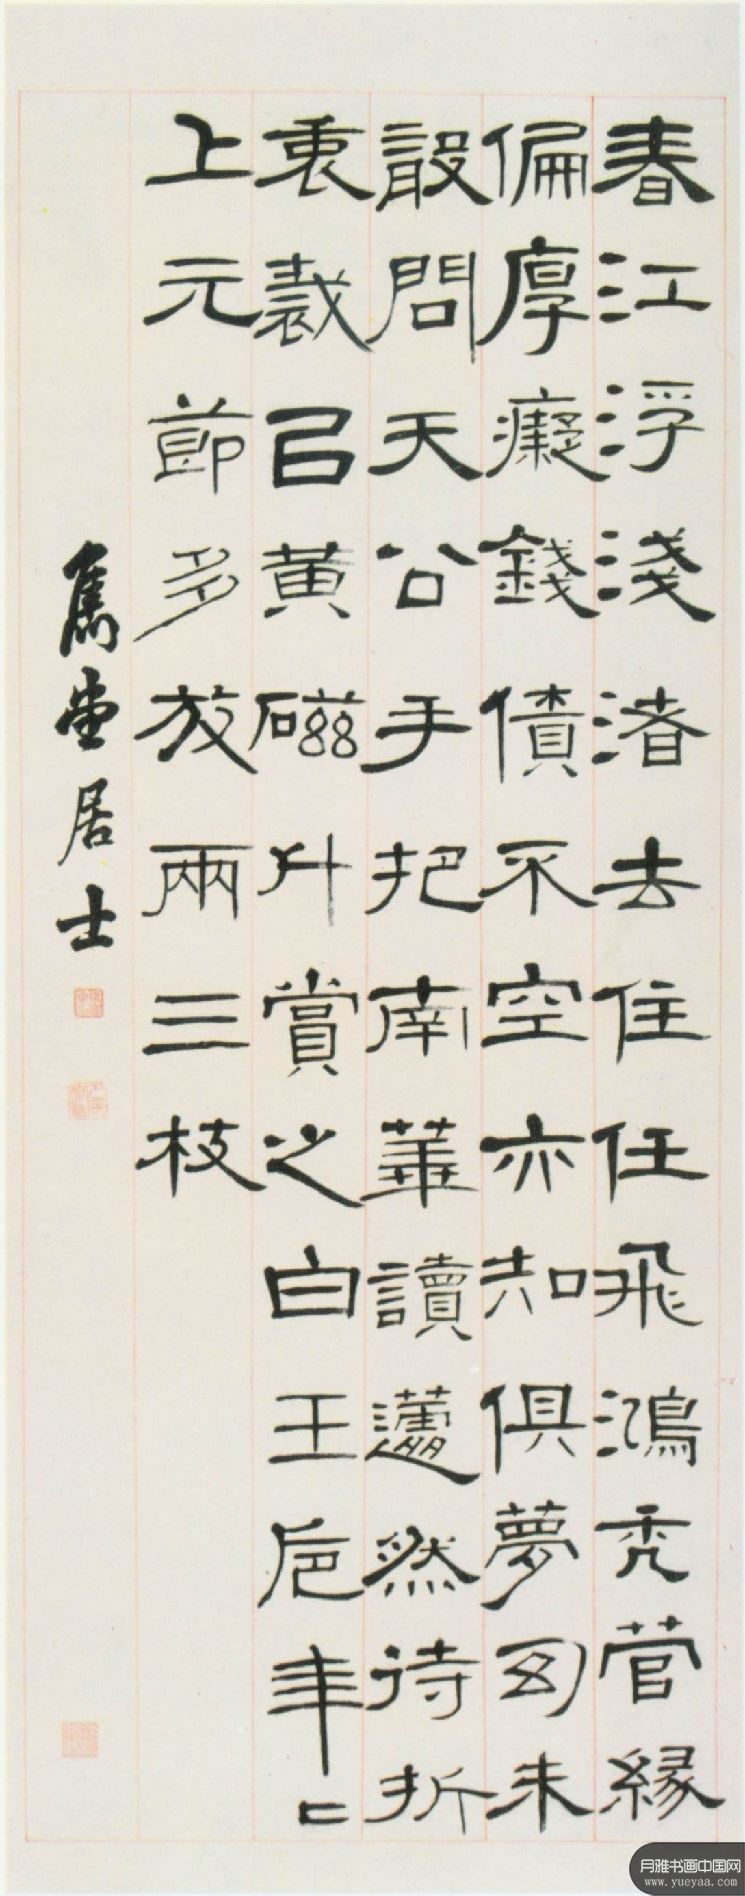 春江浮淺渚去住任飛鴻禿管緣
偏厚癡錢債不空亦知俱夢幻未
敢問天公手把南華讀然待折
衷裁㠯黃磁斗賞之白玉卮年二
上元節多放兩三枝
堂居士
月雅书画中国网
www.yueyaa.com